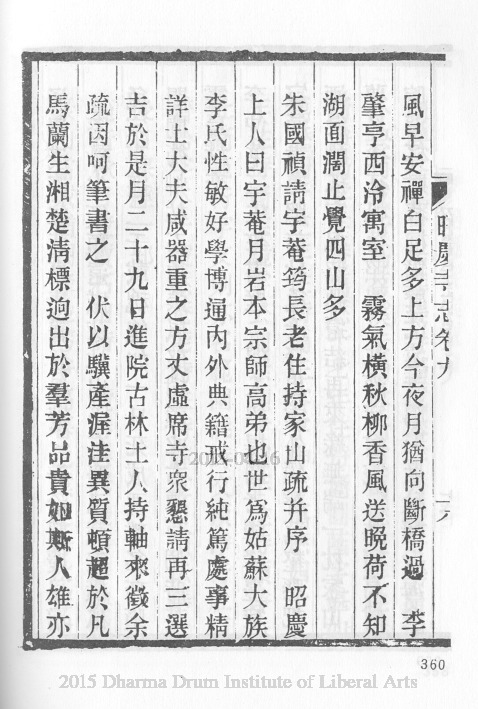 風早安禪白足多上方今夜月猶向斷橋過　李
肇亨西泠寓室　霧氣橫秋柳香風送晚荷不知
湖面濶止覺四山多
朱國禎請宇菴筠長老住持家山疏并序　昭慶
上人曰宇菴月岩本宗師高弟也世爲姑蘇大族
李氏性敏好學博通內外典籍戒行純篤處事精
詳士大夫咸器重之方丈虛席寺衆懇請再三選
吉於是月二十九日進院古林土人持軸來徵余
疏因呵筆書之　伏以驥產渥洼異質頓超於凡
馬蘭生湘楚淸標逈出於羣芳品貴如斯人雄亦
昭慶寺志卷九
360
2015 Dharma Drum Institute of Liberal Arts